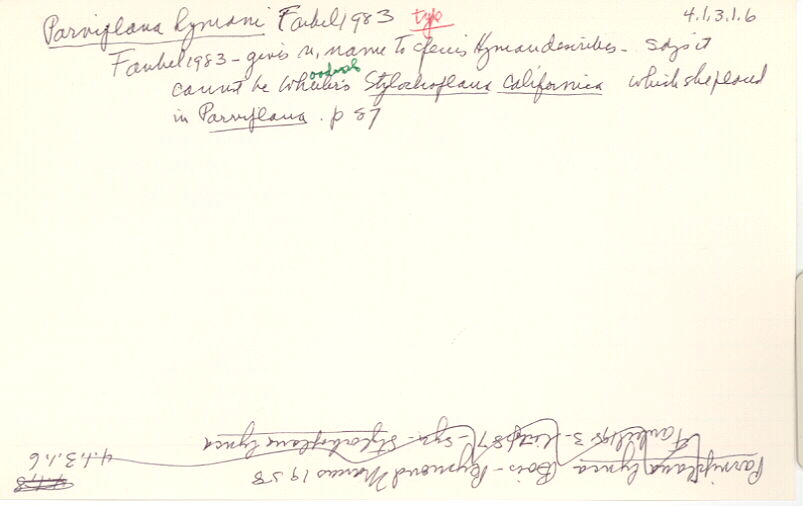 Parviplana hymani Faubel 1983 type 4.1.3.1.6
Faubel 1983 - gives n. name to specis Hyman describes - says it
cannot be Wheeler's oodwor Stylochoplana Californica which she placed
in Parviplana. p 87
Parviplana lynca Bois-Reymond Marcus 1958 4.1.3.1.6
Faubel 1983 - list p 87 - syn - Stylochoplana lynca